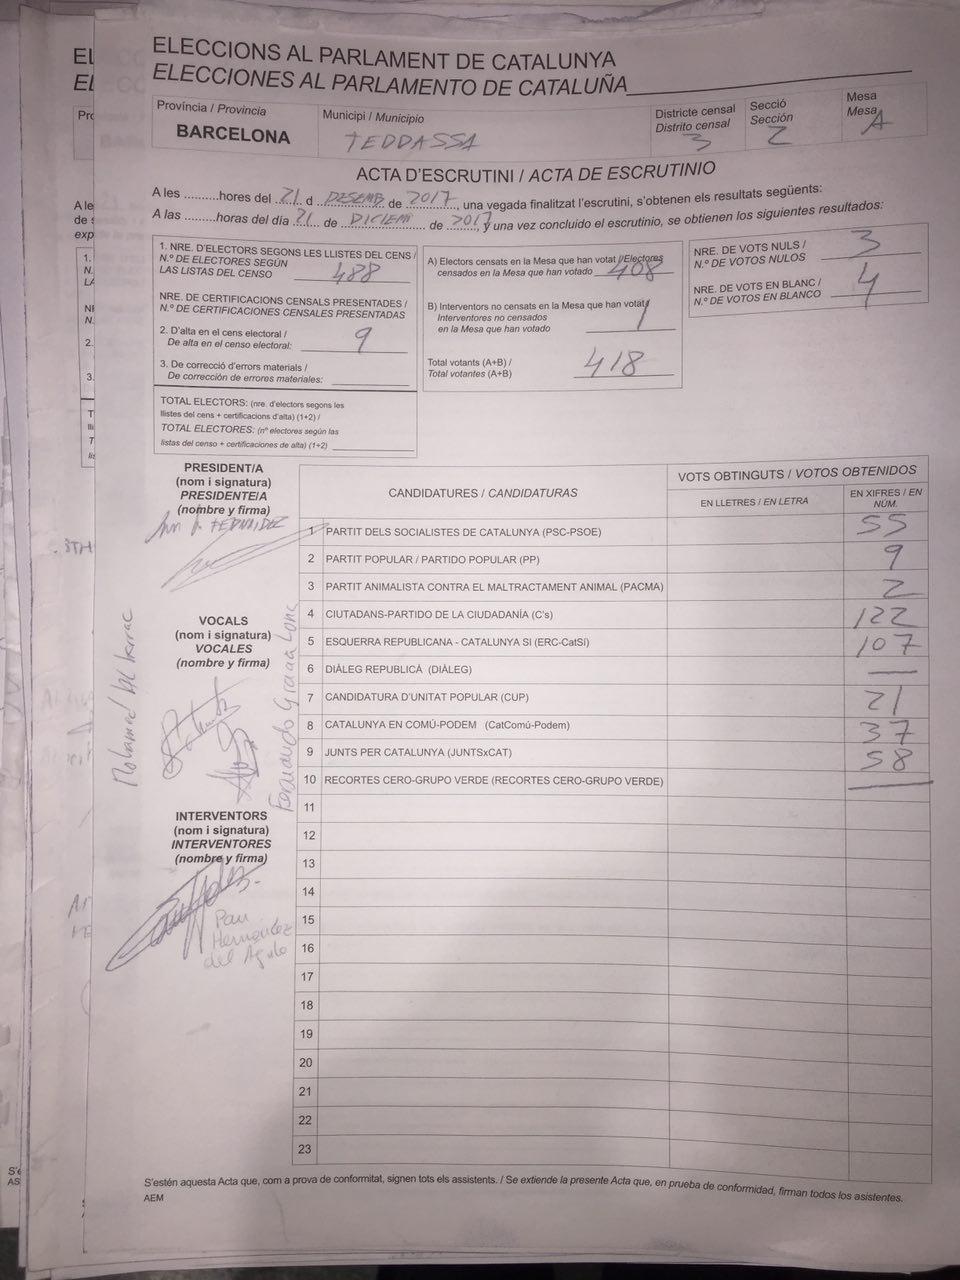 ELECCIONS AL PARLAMENT DE CATALUNYA
ELECCIONES AL PARLAMENTO DE CATALUÑA
Província / Provincia
BARCELONA
Municipi / Municipio
TEDDASSA
Districte censal
Distrito censal
3
Secció
Sección
2
Mesa
Mesa
A
ACTA D'ESCRUTINI / ACTA DE ESCRUTINIO
A les .........hores del 21 d DESEMB de 2017, una vegada finalitzat l'escrutini, s'obtenen els resultats següents:
A las .........horas del día 21 de DICIEM de 2017, y una vez concluido el escrutinio, se obtienen los siguientes resultados:
1. NRE. D'ELECTORS SEGONS LES LLISTES DEL CENS /
N.º DE ELECTORES SEGÚN
LAS LISTAS DEL CENSO 488
NRE. DE CERTIFICACIONS CENSALS PRESENTADES /
N.º DE CERTIFICACIONES CENSALES PRESENTADAS
2. D'alta en el cens electoral /
De alta en el censo electoral: 9
3. De correcció d'errors materials /
De corrección de errores materiales:
TOTAL ELECTORS: (nre. d'electors segons les
llistes del cens + certificacions d'alta) (1+2) /
TOTAL ELECTORES: (nº electores según las
listas del censo + certificaciones de alta) (1+2)
A) Electors censats en la Mesa que han votat /Electores
censados en la Mesa que han votado 408
B) Interventors no censats en la Mesa que han votat/
Interventores no censados
en la Mesa que han votado 1
Total votants (A+B) /
Total votantes (A+B) 418
NRE. DE VOTS NULS /
N.º DE VOTOS NULOS 3
NRE. DE VOTS EN BLANC /
N.º DE VOTOS EN BLANCO 4
PRESIDENT/A
(nom i signatura)
PRESIDENTE/A
(nombre y firma)
FERNANDEZ
VOCALS
(nom i signatura)
VOCALES
(nombre y firma)
Mohamed
Fernando Gracia
INTERVENTORS
(nom i signatura)
INTERVENTORES
(nombre y firma)
Pau
Hernandez
del Aguila
CANDIDATURES / CANDIDATURAS
VOTS OBTINGUTS / VOTOS OBTENIDOS
EN LLETRES / EN LETRA
EN XIFRES / EN NÚM.
1 PARTIT DELS SOCIALISTES DE CATALUNYA (PSC-PSOE) 55
2 PARTIT POPULAR / PARTIDO POPULAR (PP) 9
3 PARTIT ANIMALISTA CONTRA EL MALTRACTAMENT ANIMAL (PACMA) 2
4 CIUTADANS-PARTIDO DE LA CIUDADANÍA (C's) 122
5 ESQUERRA REPUBLICANA - CATALUNYA SI (ERC-CatSí) 107
6 DIÀLEG REPUBLICÀ (DIÀLEG) —
7 CANDIDATURA D'UNITAT POPULAR (CUP) 21
8 CATALUNYA EN COMÚ-PODEM (CatComú-Podem) 37
9 JUNTS PER CATALUNYA (JUNTSxCAT) 58
10 RECORTES CERO-GRUPO VERDE (RECORTES CERO-GRUPO VERDE) —
11
12
13
14
15
16
17
18
19
20
21
22
23
S'estén aquesta Acta que, com a prova de conformitat, signen tots els assistents. / Se extiende la presente Acta que, en prueba de conformidad, firman todos los asistentes.
AEM